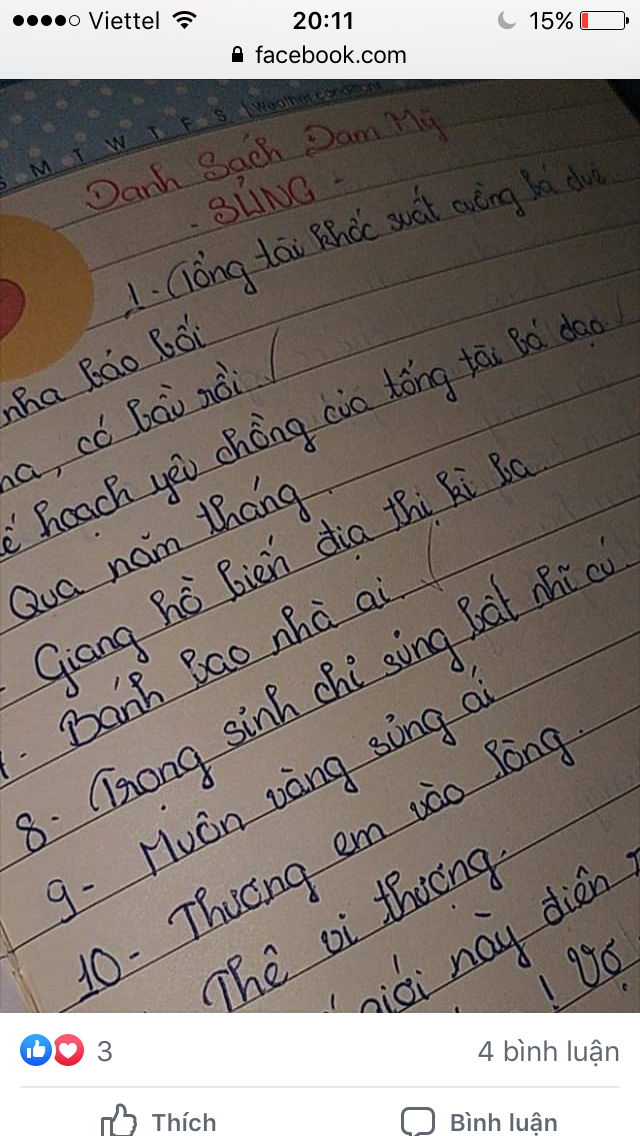 Viettel 20:11 15%
facebook.com
S M T W T F S | Weather conditions
Danh Sách Đam Mỹ
- SỦNG -
1- Tổng tài khốc suất cuồng bá duệ
nha báo bối
ma, có bầu rồi
ế hoạch yêu chồng của tổng tài bá đạo
Qua năm tháng
Giang hồ biến địa thị kì ba
- Bánh bao nhà ai
8- Trọng sinh chi sủng bất nhĩ cú
9- Muôn vàng sủng ái
10- Thương em vào lòng.
Thê vi thượng.
giới này điên
! Vợ
3 4 bình luận
Thích Bình luận